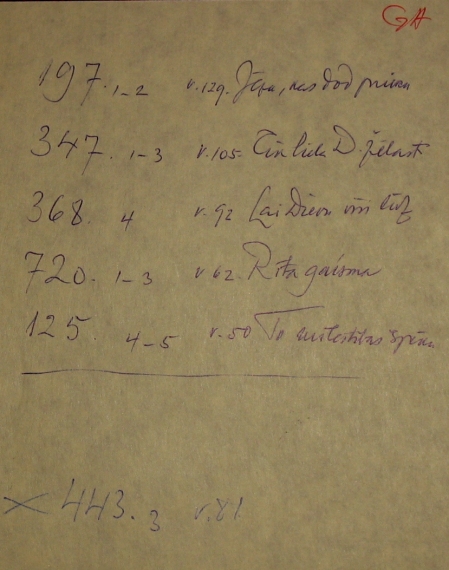 GA
197. 1-2 v.129. Jēzu, kas dod prieku
347. 1-3 v.105. Cik liela D. žēlast
368. 4 v.92 Lai Dievu visi līdz
720. 1-3 v 62. Rīta gaisma
125. 4-5 v.50 Tu mīlestības spēku
× 443. 3 v.81